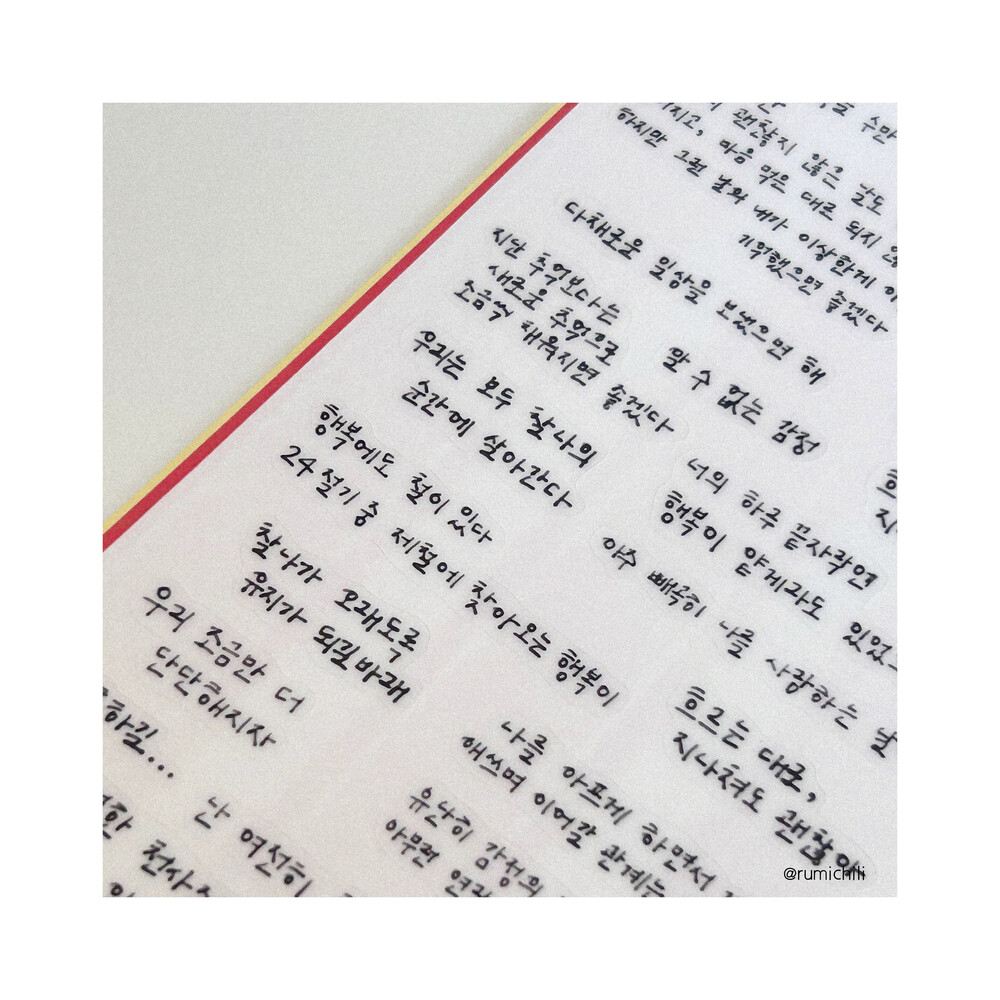 수만
괜찮지 않은 날도
지고, 마음 먹은 대로 되지 않
하지만 그런 날의 내가 이상한게
기억했으면 좋겠다
다채로운 일상을 보냈으면 해
지난 추억보다는
새로운 추억으로
조금씩 채워지면 좋겠다
알 수 없는 감정
우리는 모두 찰나의
순간에 살아간다
행복에도 철이 있다
24절기 중 제철에 찾아오는 행복이
너의 하루 끝자락엔
행복이 얕게라도 있었으
아주 빼곡히 나를 사랑하는 날
찰나가 오래도록
유지가 되길바래
우리 조금만 더
단단해지자
흐르는 대로,
지나쳐도 괜찮아
나를 아프게 하면서
애쓰며 이어갈 관계는
유난히 감정의
아무런
하길...
난 여전히
천사
@rumichili